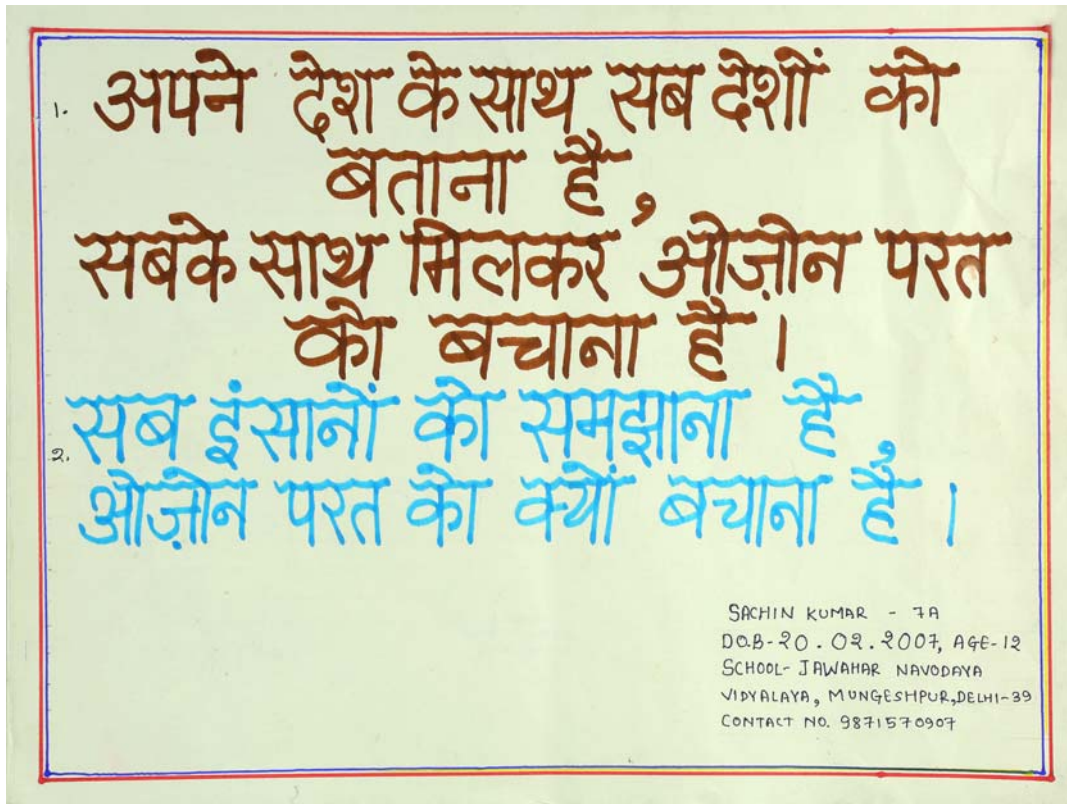 1. अपने देश के साथ सब देशों को
बताना है,
सबके साथ मिलकर ओज़ोन परत
को बचाना है।
सब इंसानों को समझाना है,
2. ओज़ोन परत को क्यों बचाना है।
SACHIN KUMAR - 7A
DOB-20.02.2007, AGE-12
SCHOOL- JAWAHAR NAVODAYA
VIDYALAYA, MUNGESHPUR,DELHI-39
CONTACT NO. 9871570907